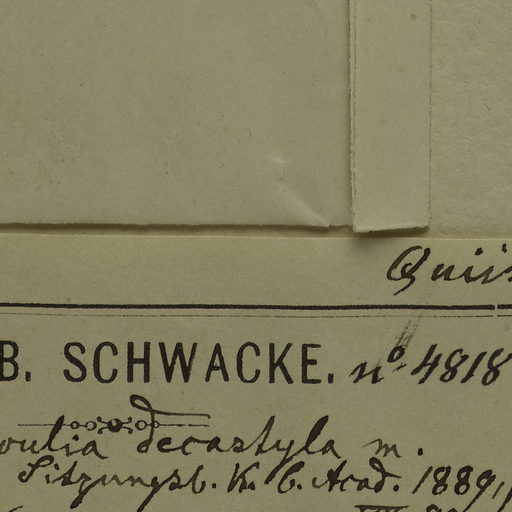 B. SCHWACKE. nº 4818
oulia decastyla m.
Sitzungsb. K. b. Acad. 1889,